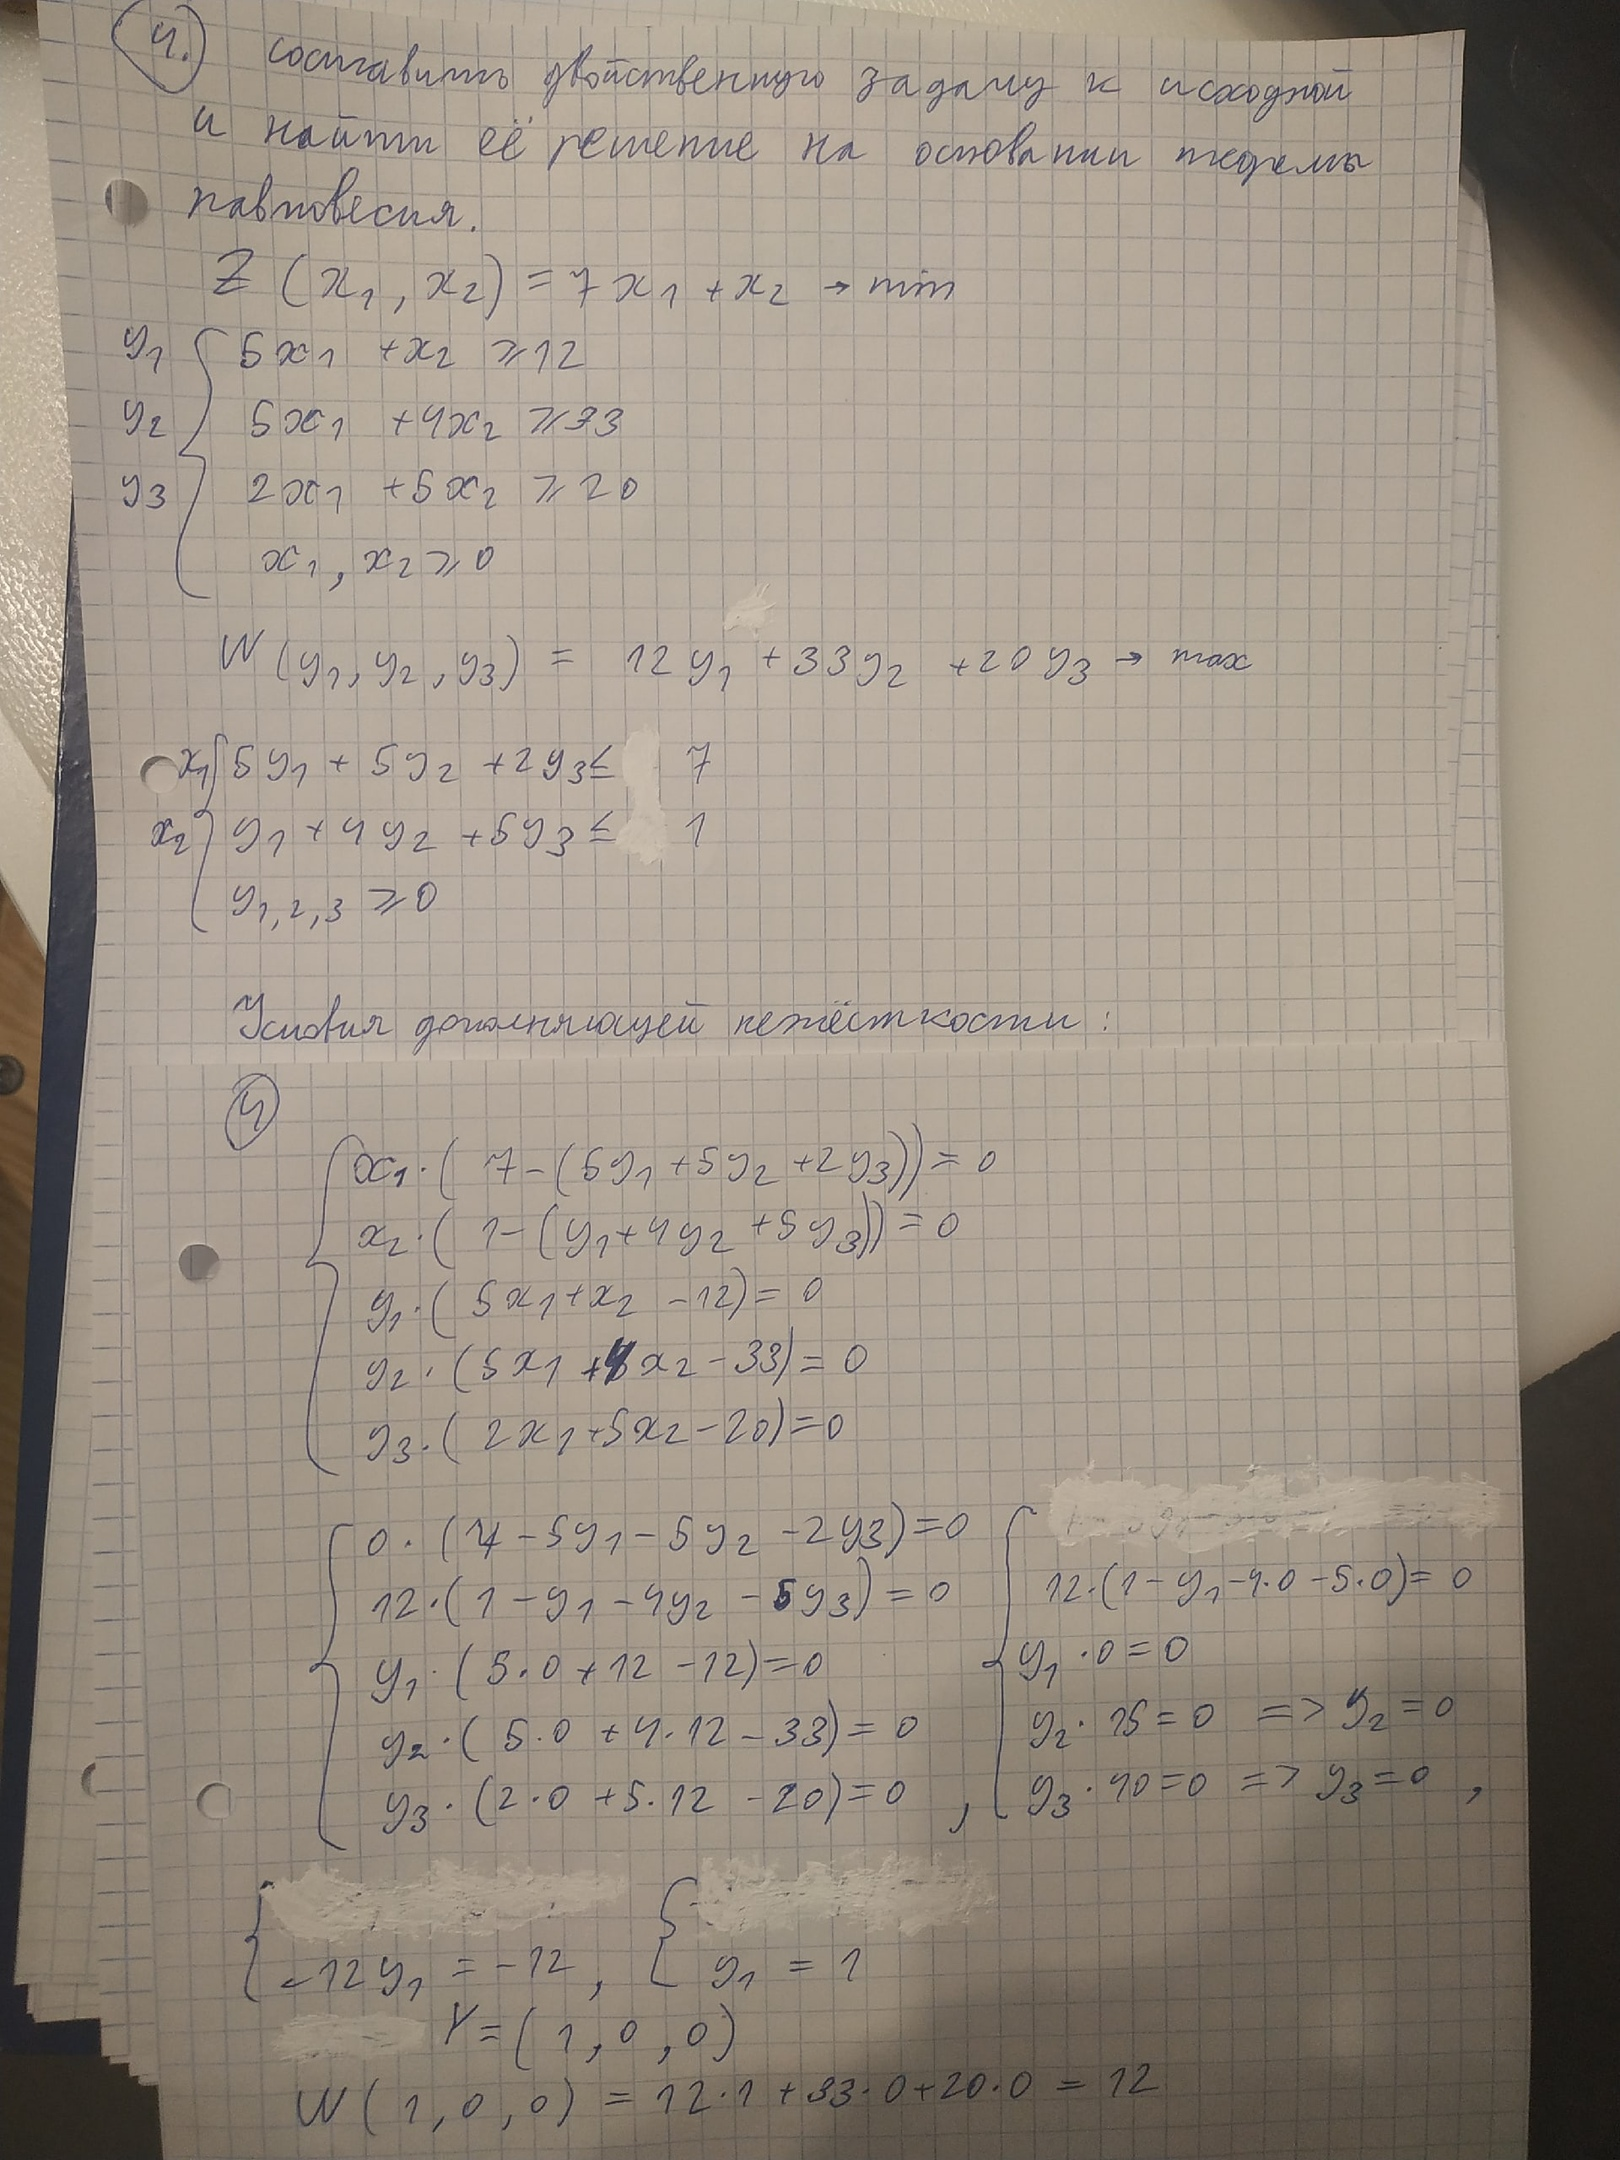 4.) составить двойственную задачу к исходной
и найти её решение на основании теоремы
равновесия.
Z (x₁, x₂) = 7x₁ + x₂ → min
y₁ { 5x₁ + x₂ ≥ 12
y₂ 5x₁ + 4x₂ ≥ 33
y₃ 2x₁ + 5x₂ ≥ 20
x₁, x₂ ≥ 0
W (y₁, y₂, y₃) = 12y₁ + 33y₂ + 20y₃ → max
x₁ { 5y₁ + 5y₂ + 2y₃ ≤ 7
x₂ y₁ + 4y₂ + 5y₃ ≤ 1
y₁,₂,₃ ≥ 0
Условия дополняющей нежёсткости:
4
{ x₁·(7-(5y₁+5y₂+2y₃))=0
x₂·(1-(y₁+4y₂+5y₃))=0
y₁·(5x₁+x₂-12)=0
y₂·(5x₁+4x₂-33)=0
y₃·(2x₁+5x₂-20)=0
{ 0·(7-5y₁-5y₂-2y₃)=0
12·(1-y₁-4y₂-5y₃)=0
y₁·(5·0+12-12)=0
y₂·(5·0+4·12-33)=0
y₃·(2·0+5·12-20)=0,
{ 12·(1-y₁-4·0-5·0)=0
y₁·0=0
y₂·15=0 => y₂=0
y₃·40=0 => y₃=0,
{ -12y₁=-12, { y₁=1
Y=(1,0,0)
W(1,0,0)=12·1+33·0+20·0=12